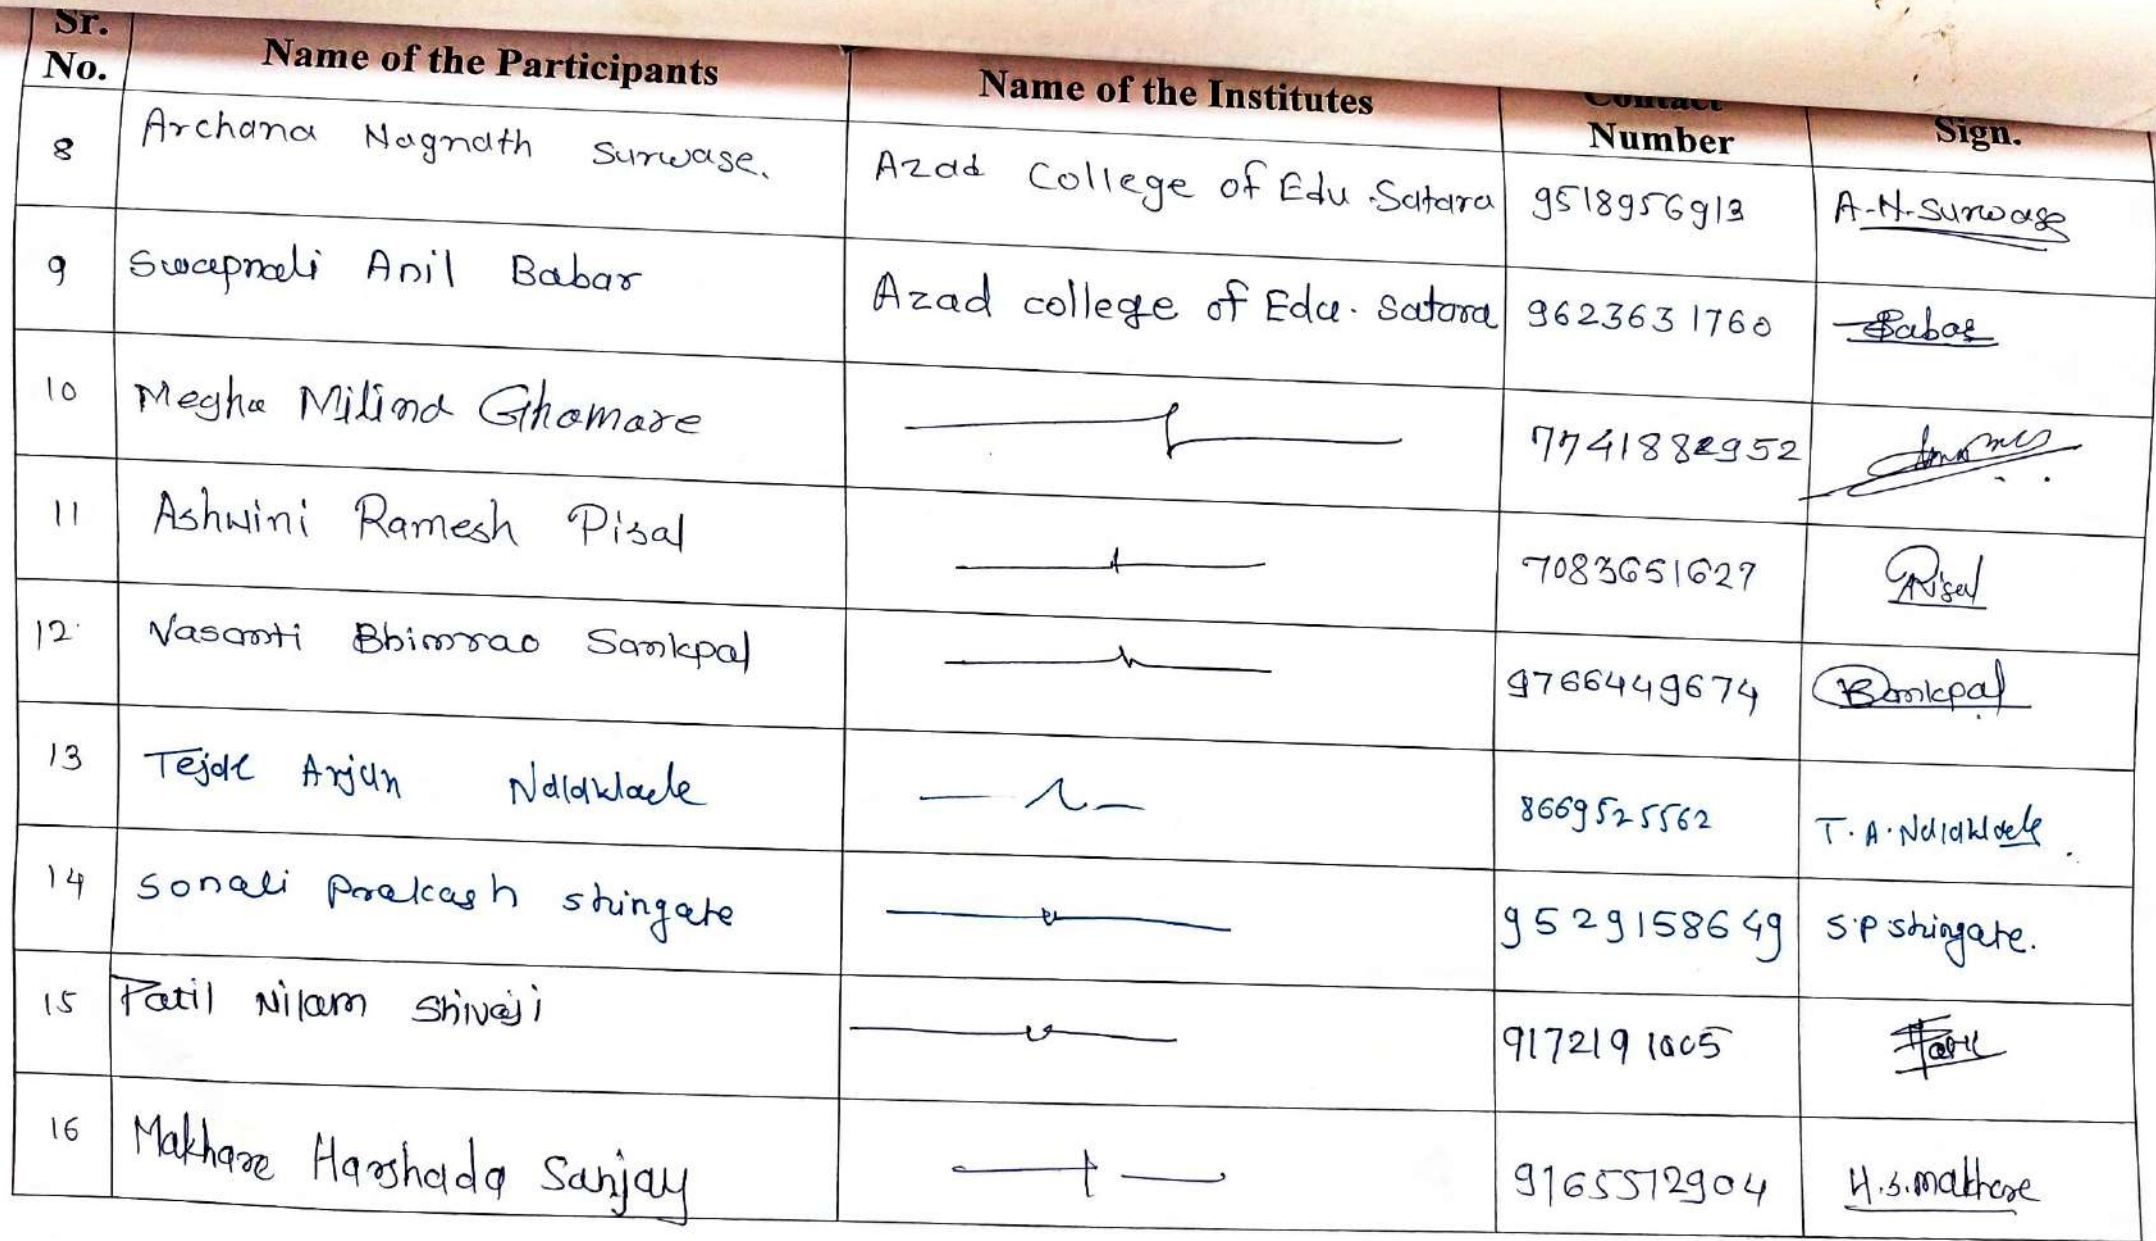 Sr. No. Name of the Participants Name of the Institutes Contact Number Sign.
8 Archana Nagnath Surwase. Azad College of Edu. Satara 9518956913 A.N.Surwase
9 Swapnali Anil Babar Azad college of Edu. Satara 9623631760 Babar
10 Megha Milind Ghamare 7741882952
11 Ashwini Ramesh Pisal 7083651627 Pisal
12 Vasanti Bhimrao Sankpal 9766449674 Sankpal
13 Tejal Arjun Nalawade 8669525562 T.A.Nalawade
14 Sonali Prakash shingate 9529158649 S.P shingate.
15 Patil Nilam Shivaji 9172191005 Patil
16 Makhare Harshada Sanjay 9165572904 H.S.makhare